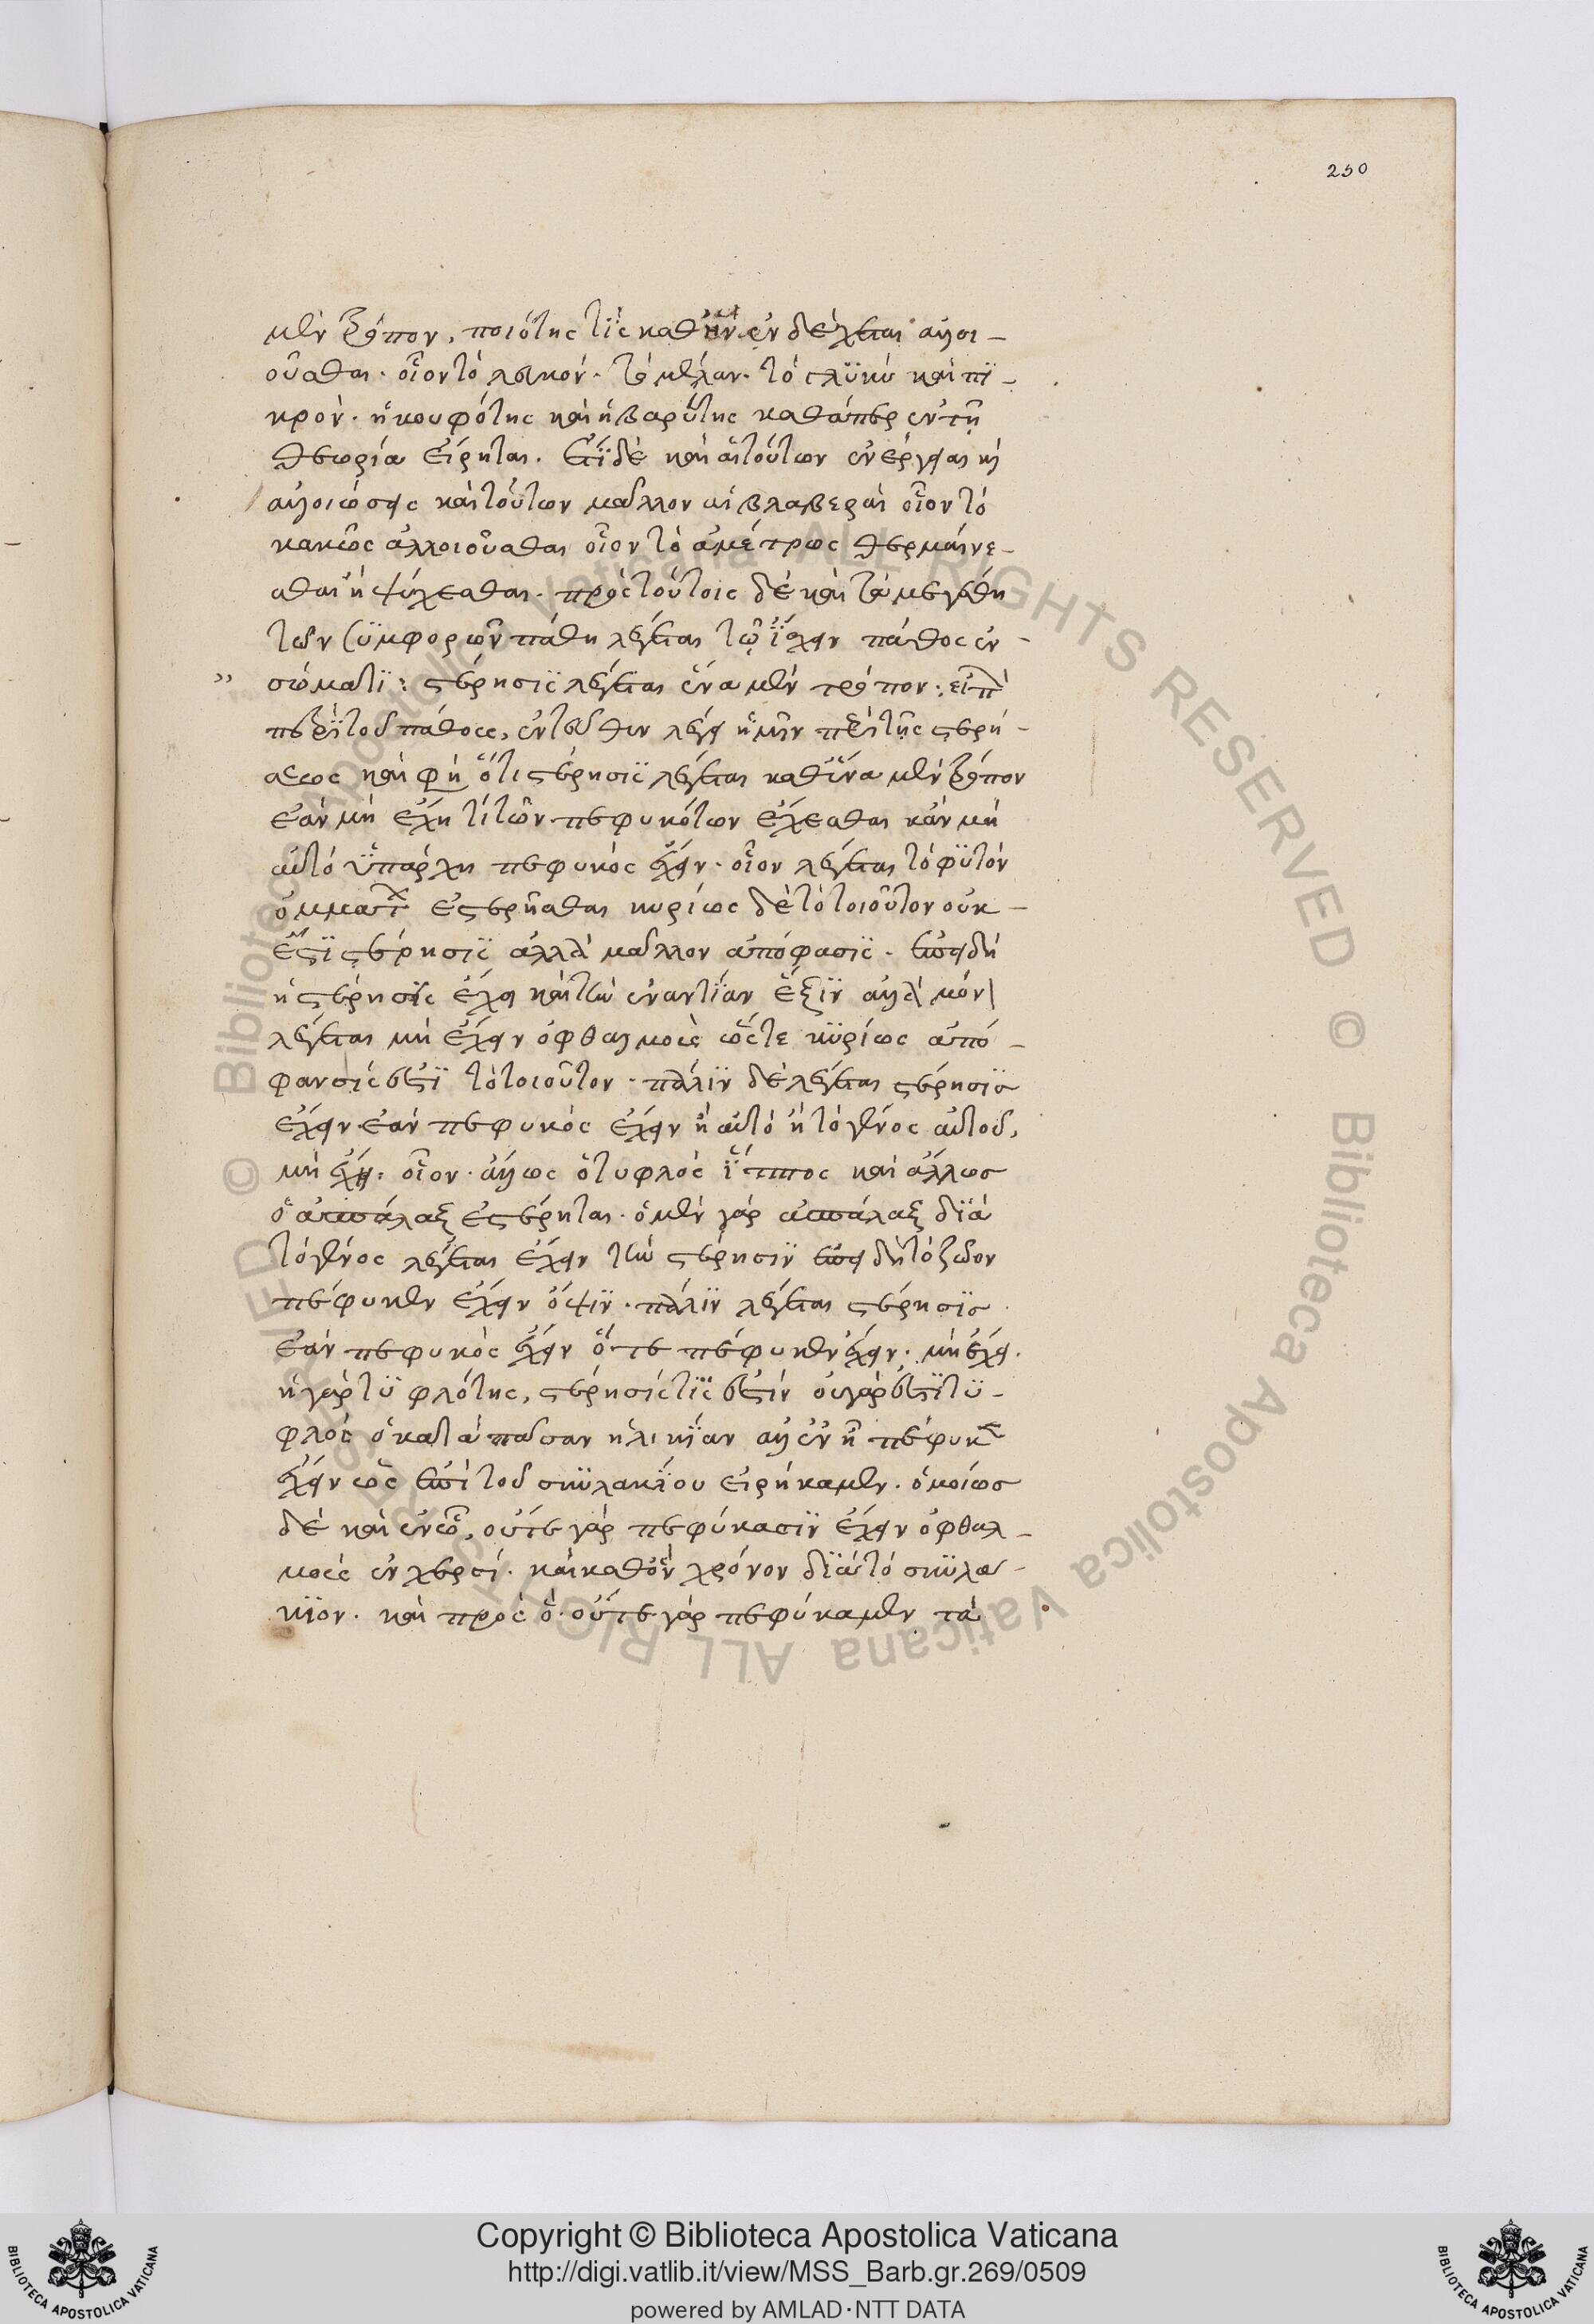 250
μὲν τρόπον, ποιότης τίς καθ' ἣν ἐνδέχεται ἀλλοι-
οῦσθαι. οἷον τὸ λευκόν. τὸ μέλαν. τὸ γλϋκὺ καὶ πϊ-
κρὸν. ἡ κουφότης καὶ ἡ βαρύτης καθάπερ ἐν τῇ
θεωρία εἴρηται. ἔτϊ δὲ καὶ αἱ τούτων ἐνέργειαι καὶ
ἀλλοιώσεις καὶ τούτων μᾶλλον αἱ βλαβεραὶ οἷον τὸ
κακῶς ἀλλοιοῦσθαι οἷον τὸ ἀμέτρως θερμαίνε-
σθαι ἢ ψύχεσθαι. πρὸς τούτοις δὲ καὶ τὰ μεγέθη
τῶν συμφορῶν πάθη λέγεται τῷ ἴσχειν πάθος ἐν
σώματϊ: στέρησϊς λέγεται ἕνα μὲν τρόπον: εἰπὼν
περὶ τοῦ πάθους, ἐντεῦθεν λέγει ἡμῖν περὶ τῆς στερή-
σεως καὶ φησὶ ὅτι στέρησϊς λέγεται καθ' ἕνα μὲν τρόπον
ἐὰν μὴ ἔχη τί τῶν πεφυκότων ἔχεσθαι κἂν μὴ
αὐτὸ ὑπάρχη πεφυκὸς ἔχειν. οἷον λέγεται τὸ φϋτὸν
ὀμμάτων ἐστερῆσθαι κυρίως δὲ τὸ τοιοῦτον οὐκ
ἔστϊ στέρησϊς ἀλλὰ μᾶλλον ἀπόφασϊς. ἐπειδὴ
ἡ στέρησϊς ἔχει καὶ τὴν ἐναντίαν ἕξϊν ἀλλὰ μόνον
λέγεται μὴ ἔχειν ὀφθαλμοὺς ὥστε κϋρίως ἀπό-
φανσίς ἐστϊ τὸ τοιοῦτον. πάλϊν δὲ λέγεται στέρησϊς
ἔχειν ἐὰν πεφυκὸς ἔχειν ἢ αὐτὸ ἢ τὸ γένος αὐτοῦ,
μὴ ἔχη. οἷον. ἄλλως ὁ τυφλὸς ἵππος καὶ ἄλλως
ὁ ἀσπάλαξ ἐστέρηται. ὁ μὲν γὰρ ἀσπάλαξ δϊὰ
τὸ γένος λέγεται ἔχειν τὴν στέρησϊν ἐπειδὴ τὸ ζῶον
πέφυκεν ἔχειν ὄψϊν. πάλϊν λέγεται στέρησϊς
ἐὰν πεφυκὸς ἔχειν ὅτε πέφυκεν ἔχειν. μὴ ἔχει.
ἡ γὰρ τϋφλότης, στέρησίς τϊς ἐστὶν οὐ γάρ ἐστϊ τϋ-
φλὸς ὁ κατὰ πᾶσαν ἡλικϊαν ἀλλ' ἐν ᾗ πέφυκεν
ἔχειν ὡς ἐπὶ τοῦ σκϋλακίου εἰρήκαμεν. ὁμοίως
δὲ καὶ ἐν ᾧ, οὔτε γὰρ πεφύκασϊν ἔχειν ὀφθαλ-
μοὺς ἐν χερσί. καὶ καθ' ὃν χρόνον δϊὰ τὸ σκϋλά-
κϊον. καὶ πρὸς ὃ. οὔτε γὰρ πεφύκαμεν τὰ
Copyright © Biblioteca Apostolica Vaticana
http://digi.vatlib.it/view/MSS_Barb.gr.269/0509
powered by AMLAD·NTT DATA